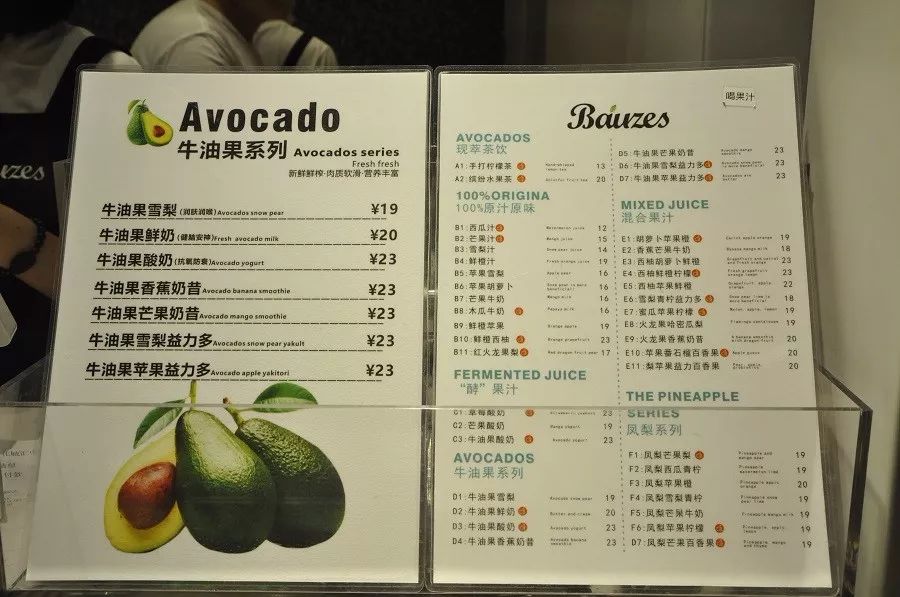 Avocado
牛油果系列 Avocados series
Fresh fresh
新鲜鲜榨·肉质软滑·营养丰富
牛油果雪梨(润肤润喉)Avocados snow pear ¥19
牛油果鲜奶(健脑安神)Fresh avocado milk ¥20
牛油果酸奶(抗氧防衰)Avocado yogurt ¥23
牛油果香蕉奶昔Avocado banana smoothie ¥23
牛油果芒果奶昔Avocado mango smoothie ¥23
牛油果雪梨益力多Avocado snow pear yakult ¥23
牛油果苹果益力多Avocado apple yakitori ¥23
喝果汁
Bauzes
AVOCADOS
现萃茶饮
A1:手打柠檬茶 Hand-whipped lemon tea 13
A2:缤纷水果茶 Colorful fruit tea 20
100%ORIGINA
100%原汁原味
B1:西瓜汁 Watermelon juice 12
B2:芒果汁 Mango juice 15
B3:雪梨汁 Snow pear juice 14
B4:鲜橙汁 Fresh orange juice 19
B5:苹果雪梨 Apple pear 16
B6:苹果胡萝卜 16
B7:芒果牛奶 Mango milk 16
B8:木瓜牛奶 Papaya milk 16
B9:鲜橙苹果 Orange apple 19
B10:鲜橙西柚 Orange grapefruit 23
B11:红火龙果梨 Red dragon fruit pear 17
FERMENTED JUICE
“酵”果汁
C1:草莓酸奶 Strawberry yoghurt 23
C2:芒果酸奶 Mango yogurt 19
C3:牛油果酸奶 Avocado yogurt 23
AVOCADOS
牛油果系列
D1:牛油果雪梨 Avocado snow pear 19
D2:牛油果鲜奶 Butter and cream 20
D3:牛油果酸奶 Avocado yogurt 23
D4:牛油果香蕉奶昔 Avocado banana smoothie 23
D5:牛油果芒果奶昔 Avocado mango smoothie 23
D6:牛油果雪梨益力多 23
D7:牛油果苹果益力多 23
MIXED JUICE
混合果汁
E1:胡萝卜苹果橙 Carrot apple orange 19
E2:香蕉芒果牛奶 Banana mango milk 18
E3:西柚胡萝卜鲜橙 Grapefruit and carrot and fresh orange 23
E4:西柚鲜橙柠檬 Fresh grapefruit orange lemon 23
E5:西柚苹果鲜橙 Grapefruit, apple orange 22
E6:雪梨青柠益力多 18
E7:蜜瓜苹果柠檬 Melon, apple, lemon 19
E8:火龙果哈密瓜梨 19
E9:火龙果香蕉奶昔 20
E10:苹果番石榴百香果 Apple guava 20
E11:梨苹果益力百香果 20
THE PINEAPPLE
SERIES
凤梨系列
F1:凤梨芒果梨 Pineapple and mango pear 19
F2:凤梨西瓜青柠 Pineapple watermelon lime 19
F3:凤梨苹果橙 Pineapple apple orange 20
F4:凤梨雪梨青柠 Pineapple snow pear lime 19
F5:凤梨芒果牛奶 Pineapple mango milk 19
F6:凤梨苹果柠檬 Pineapple, apple, lemon 19
D7:凤梨芒果百香果 19